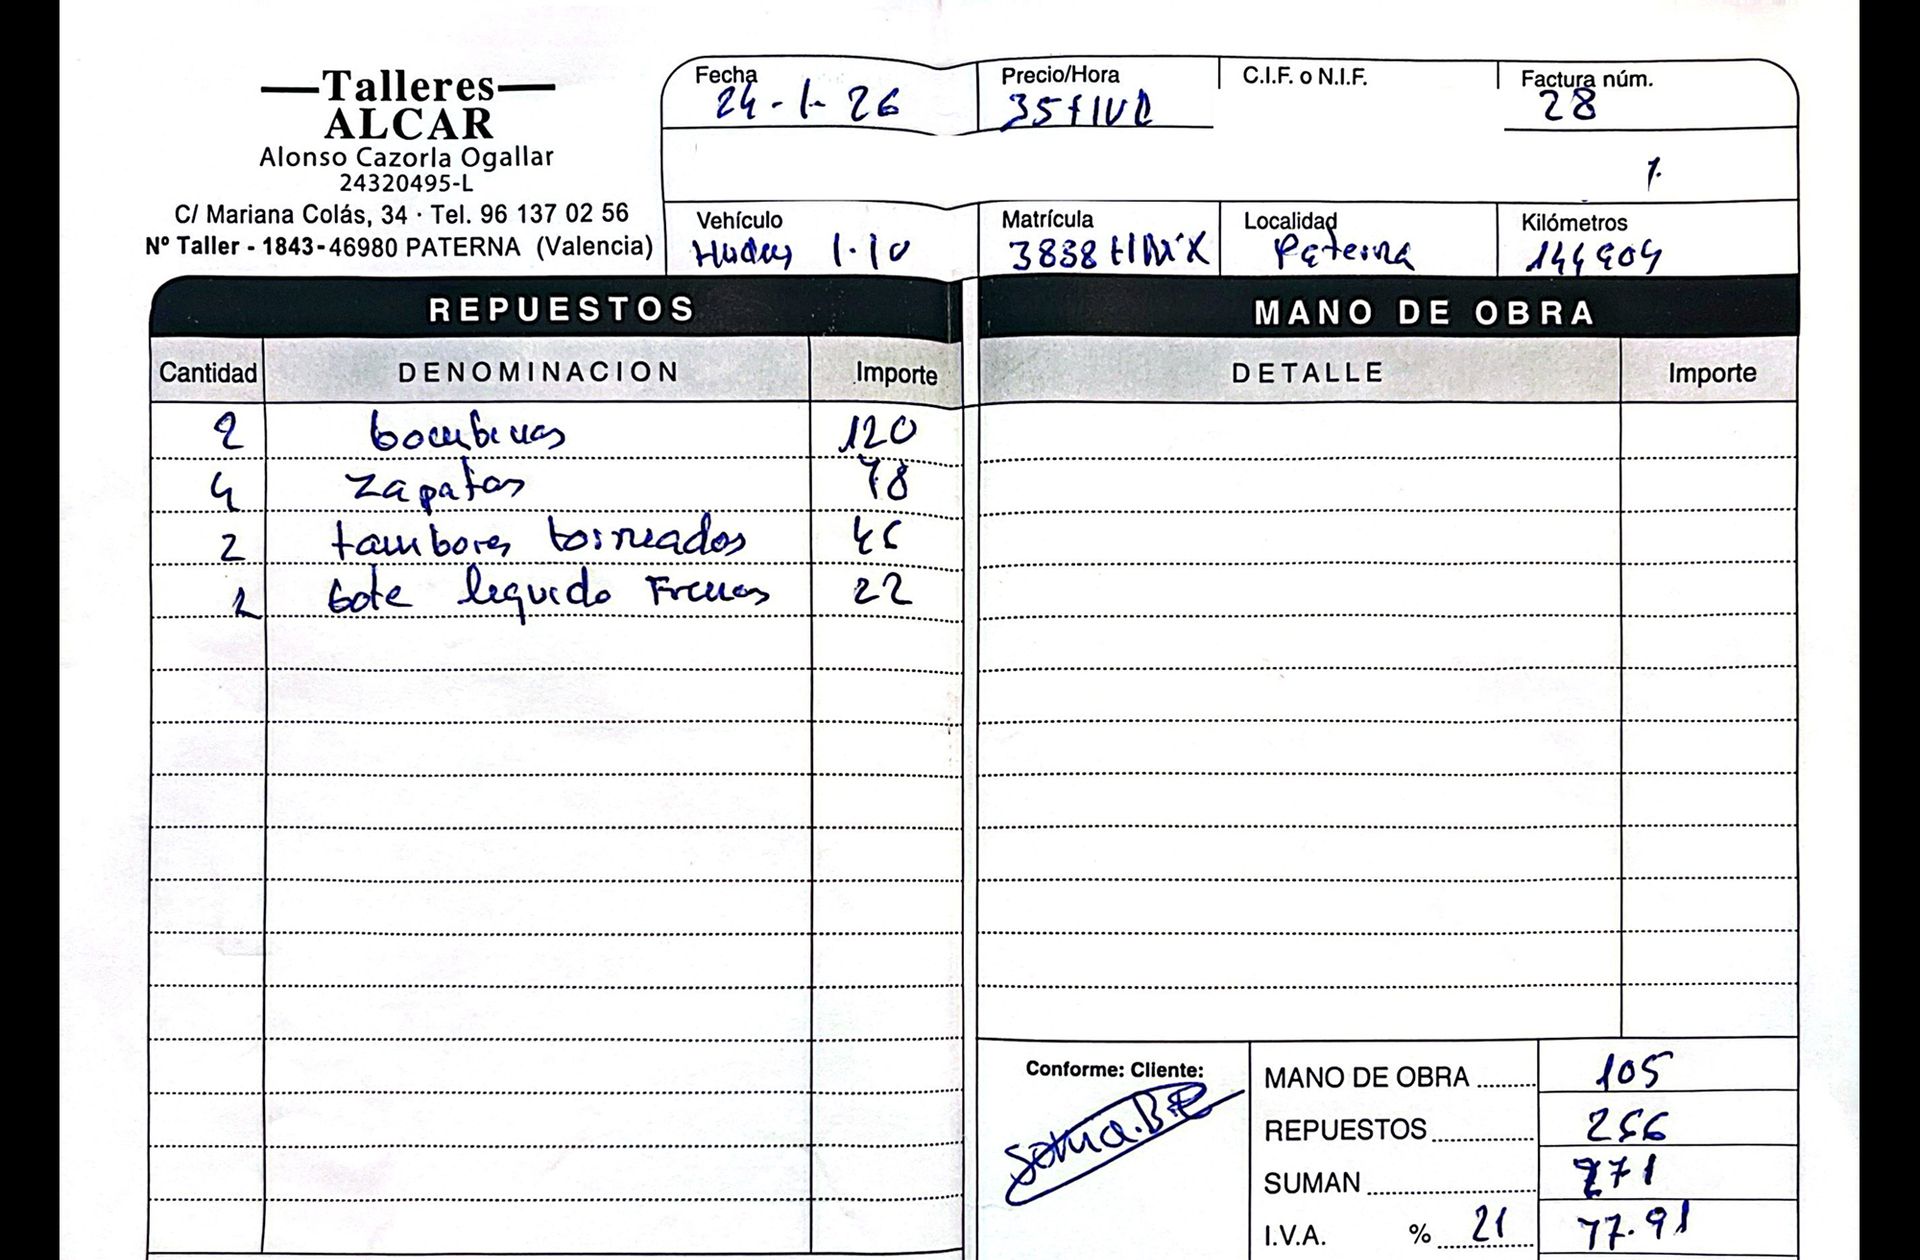 Talleres
ALCAR
Alonso Cazorla Ogallar
24320495-L
C/ Mariana Colás, 34 · Tel. 96 137 02 56
Nº Taller - 1843-46980 PATERNA (Valencia)
Fecha
24-1-26
Precio/Hora
35+IVA
C.I.F. o N.I.F.
Factura núm.
28
Vehículo
I-10
Matrícula
3838
Localidad
Paterna
Kilómetros
144904
REPUESTOS
MANO DE OBRA
Cantidad DENOMINACION Importe
DETALLE Importe
2 bombines 120
4 zapatas 78
2 tambores torneados 46
1 bote liquido Frenos 22
Conforme: Cliente:
MANO DE OBRA 105
REPUESTOS 266
SUMAN 371
I.V.A. % 21 77.91